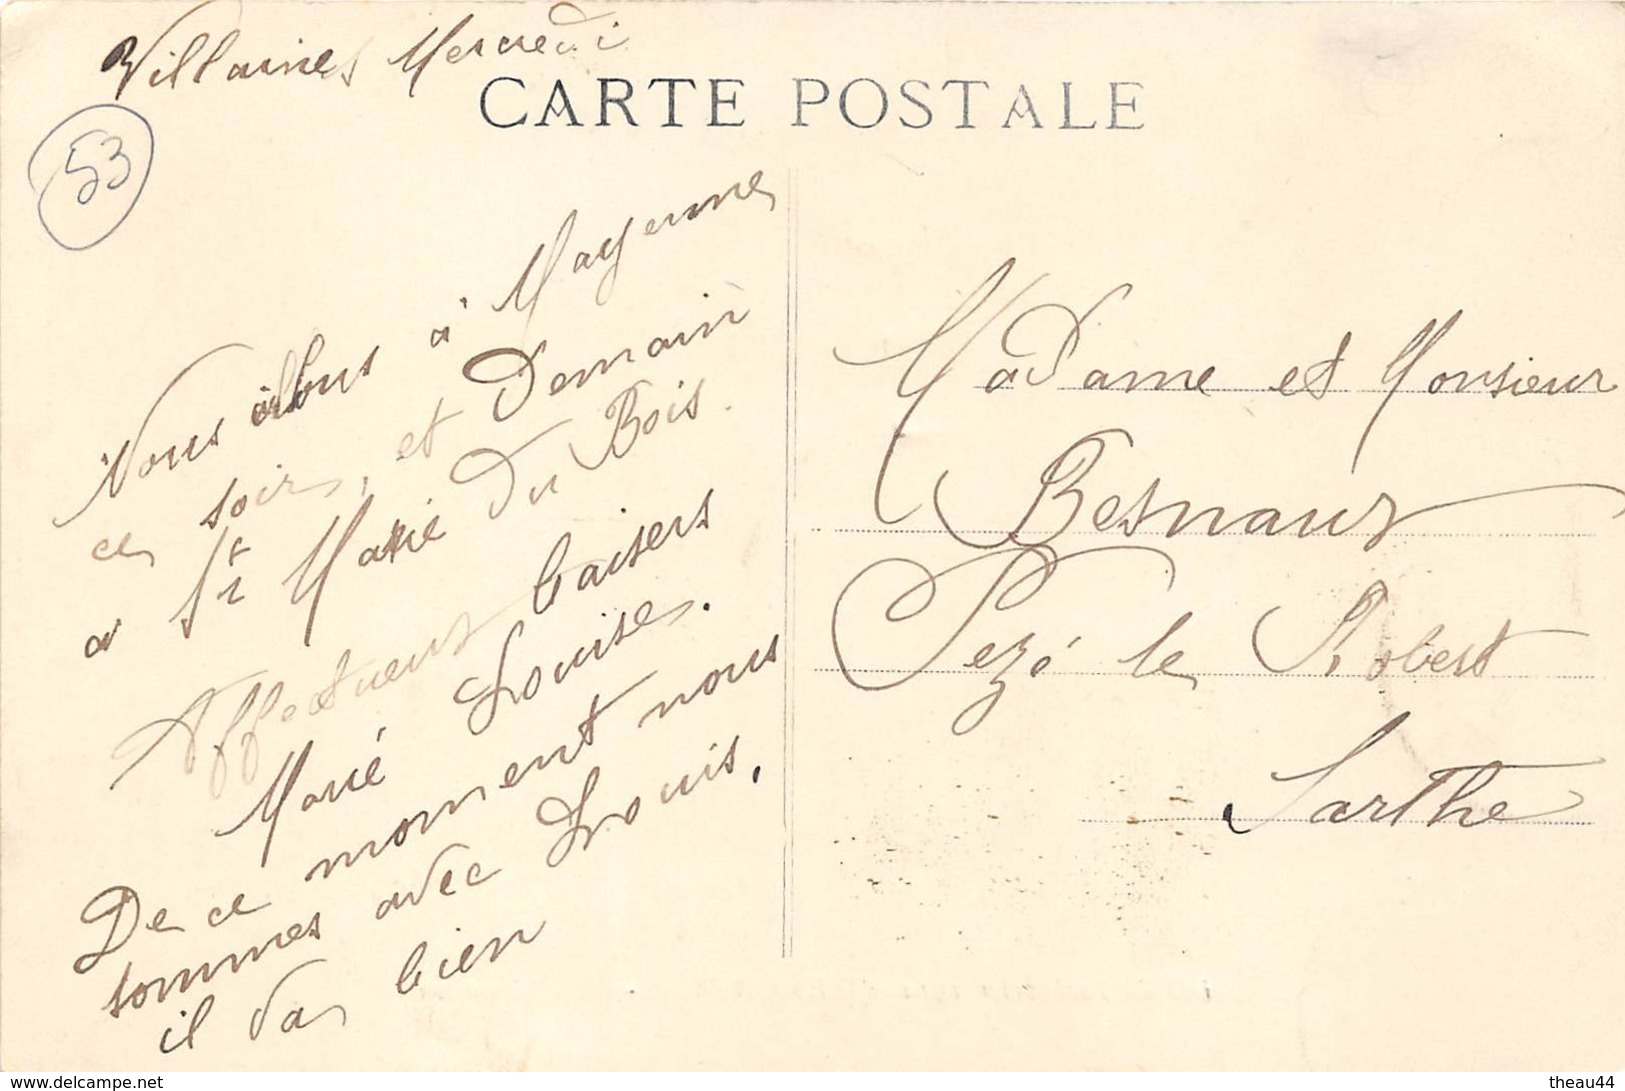 Villaines Mercredi
CARTE POSTALE
53
Nous allons à Mayenne
ce soir, et Demain
a St Marie Du Bois.
Affectueux baisers
Marie Louise.
De ce moment nous
sommes avec Louis,
il va bien
Madame et Monsieur
Besnaux
Sezé le Robert
Sarthe
www.delcampe.net
theau44